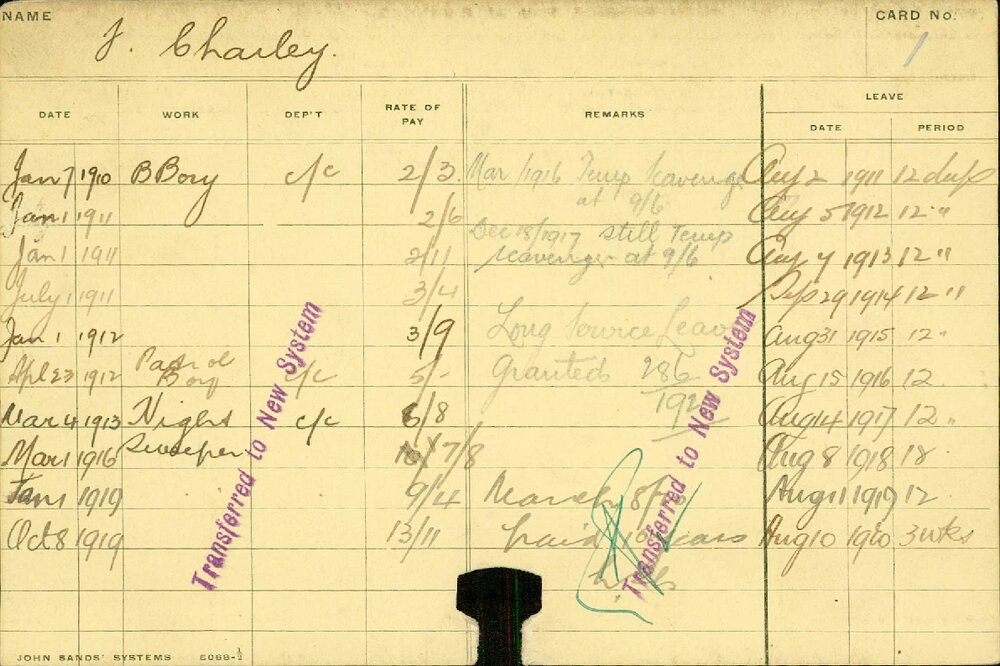 NAME
J. Charley.
CARD No.
1
DATE WORK DEP'T RATE OF PAY REMARKS LEAVE
DATE PERIOD
Jan 7 1910 B Boy c/c 2/3 Mar 1916 Temp Scavenger Aug 2 1911 12 days
at 9/6
Jan 1 1911 2/6 Aug 5 1912 12 "
Dec 18/1917 still Temp
Jan 1 1911 2/11 scavenger at 9/6 Aug 4 1913 12 "
July 1 1911 3/4 Sep 29 1914 12 "
Jan 1 1912 3/9 Long Service Leave Aug 31 1915 12 "
Apl 23 1912 Patrol Boy c/c 5/- Granted 286 Aug 15 1916 12
Mar 4 1913 Night c/c 6/8 Aug 14 1917 12 "
Mar 1 1916 Sweeper 7/8 Aug 8 1918 18
Jan 1 1919 9/4 March 8 Aug 11 1919 12
Oct 8 1919 13/11 paid years Aug 10 1920 3 wks
Transferred to New System
Transferred to New System
JOHN SANDS' SYSTEMS E088-½